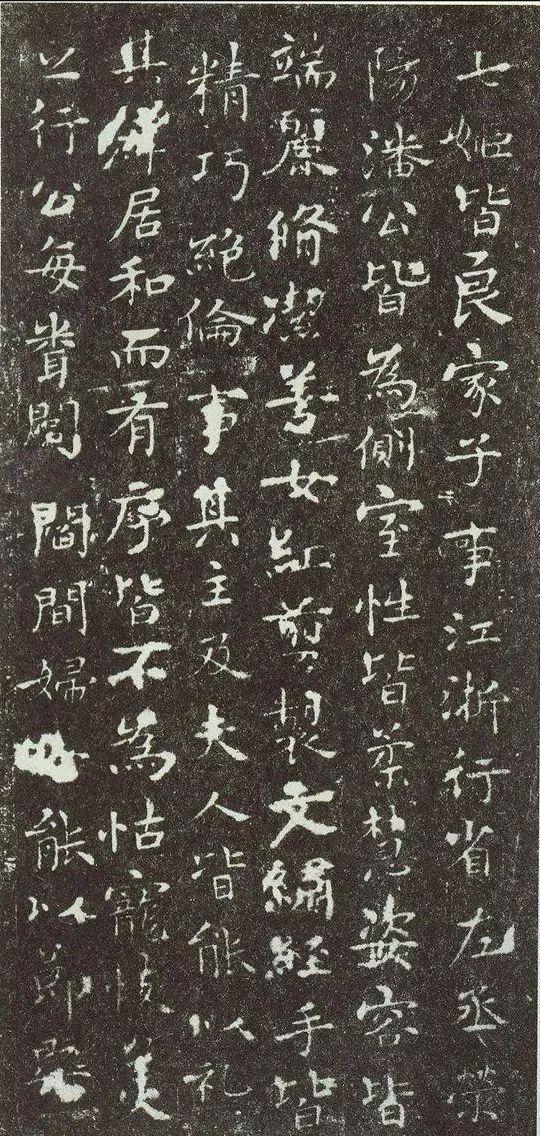 七姬皆良家子事江浙行省左丞榮
陽潘公皆為側室性皆柔慧姿容皆
端麗脩潔善女紅剪製文繡經手皆
精巧絕倫事其主及夫人皆能以礼
其羣居和而有序皆不為怙寵忮美
之行公每閭閻間婦能以節